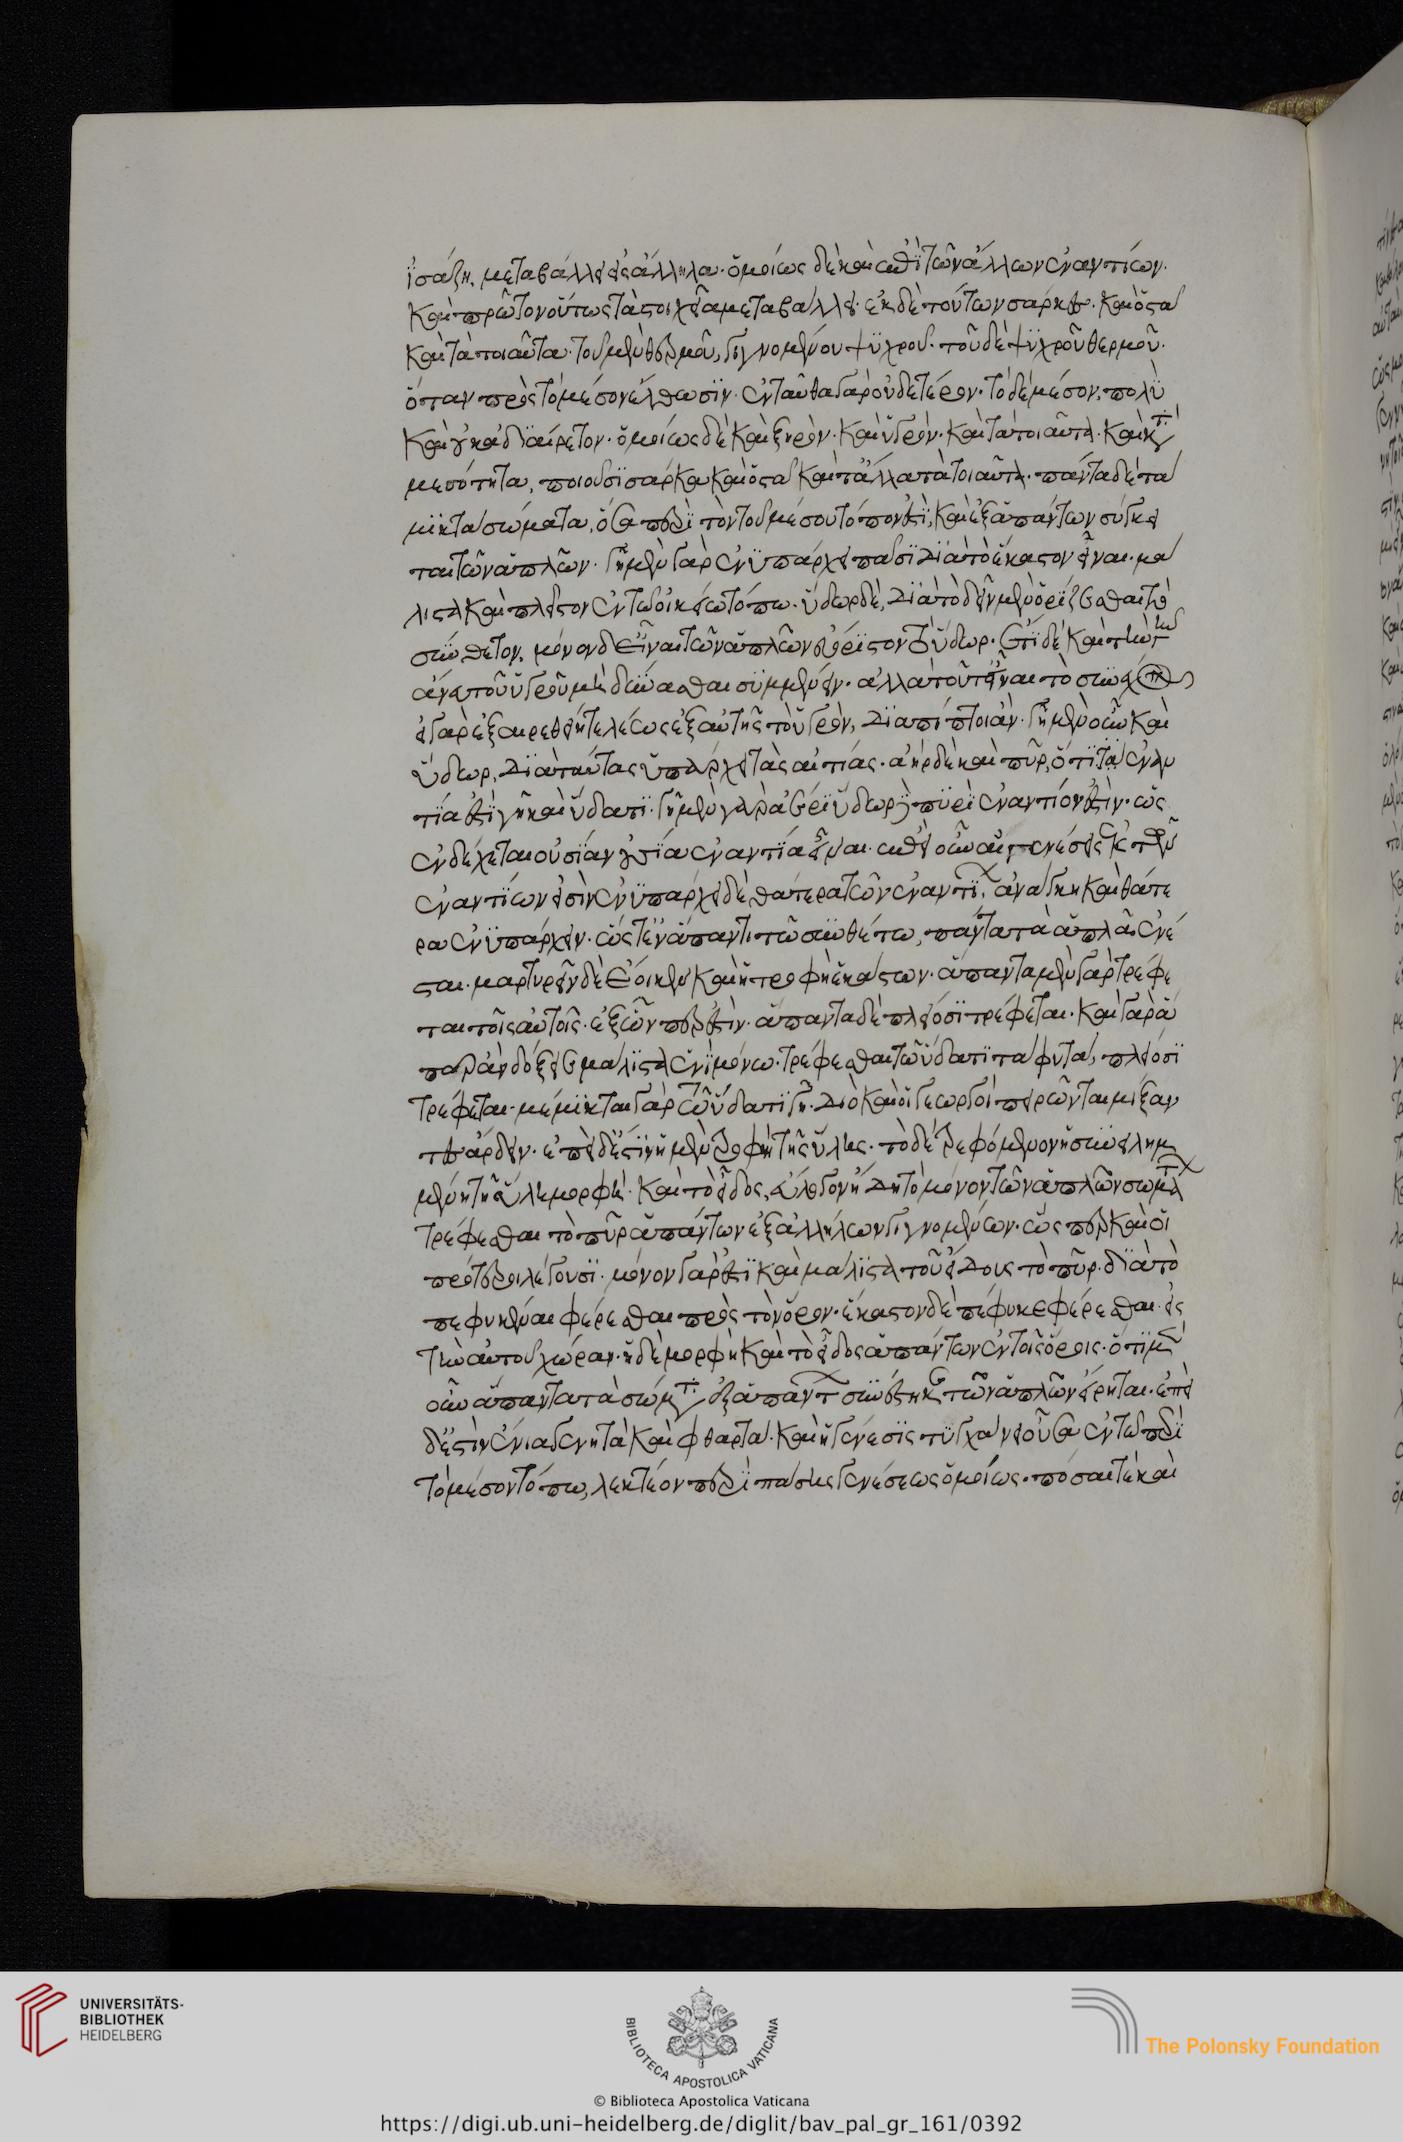 ἰσάζῃ, μεταβάλλει εἰς ἄλληλα· ὁμοίως δὲ καὶ ἐπὶ τῶν ἄλλων ἐναντίων·
καὶ πρῶτον οὕτως τὰ στοιχεῖα μεταβάλλει· ἐκ δὲ τούτων σάρκες· καὶ ὀστᾶ
καὶ τὰ τοιαῦτα· τοῦ μὲν θερμοῦ, γιγνομένου ψυχροῦ· τοῦ δὲ ψυχροῦ θερμοῦ·
ὅταν πρὸς τὸ μέσον ἔλθωσιν· ἐνταῦθα γὰρ οὐδέτερον· τὸ δὲ μέσον, πολὺ
καὶ οὐκ ἀδιαίρετον· ὁμοίως δὲ καὶ ξηρὸν· καὶ ὑγρὸν· καὶ τὰ τοιαῦτα· κατὰ
μεσότητα, ποιοῦσι σάρκα καὶ ὀστᾶ καὶ τἄλλα τὰ τοιαῦτα· πάντα δὲ τὰ
μικτὰ σώματα, ὅσα περὶ τὸν τοῦ μέσου τόπον ἐστὶ, καὶ ἐξ ἁπάντων σύγκει
ται τῶν ἁπλῶν· γῆ μὲν γὰρ ἐνυπάρχει πᾶσι διὰ τὸ ἕκαστον εἶναι· μά
λιστα καὶ πλεῖστον ἐν τῷ οἰκείῳ τόπῳ· ὕδωρ δὲ, διὰ τὸ δεῖν μὲν ὁρίζεσθαι τὸ
σύνθετον, μόνον δ' εἶναι τῶν ἁπλῶν εὐόριστον τὸ ὕδωρ· ἔτι δὲ καὶ τὴν γῆν
ἄνευ τοῦ ὑγροῦ μὴ δύνασθαι συμμένειν· ἀλλὰ τοῦτ' εἶναι τὸ συνέχον
εἰ γὰρ ἐξαιρεθείη τελέως ἐξ αὐτῆς τὸ ὑγρὸν, διαπίπτοι ἂν· γῆ μὲν οὖν καὶ
ὕδωρ, διὰ ταύτας ὑπάρχει τὰς αἰτίας· ἀὴρ δὲ καὶ πῦρ, ὅτι ἐναν
τία ἐστὶ γῆ καὶ ὕδατι· γῆ μὲν γὰρ ἀέρι ὕδωρ δὲ πυρὶ ἐναντίον ἐστὶν· ὡς
ἐνδέχεται οὐσίαν οὐσίᾳ ἐναντίαν εἶναι· ἐπεὶ οὖν αἱ γενέσεις ἐκ τῶν
ἐναντίων εἰσὶν ἐνυπάρχει δὲ θάτερα τῶν ἐναντίων, ἀνάγκη καὶ θάτε
ρα ἐνυπάρχειν· ὥστ' ἐν ἅπαντι τῷ συνθέτῳ, πάντα τὰ ἁπλᾶ ἐνέ
σται· μαρτυρεῖν δὲ ἔοικεν καὶ ἡ τροφὴ ἑκάστων· ἅπαντα μὲν γὰρ τρέφε
ται τοῖς αὐτοῖς· ἐξ ὧν περ ἐστὶν· ἅπαντα δὲ πλείοσι τρέφεται· καὶ γὰρ ἅ
περ ἂν δόξειε μάλιστα ἑνὶ μόνῳ τρέφεσθαι τῷ ὕδατι τὰ φυτὰ, πλείοσι
τρέφεται· μέμικται γὰρ τῷ ὕδατι γῆ· διὸ καὶ οἱ γεωργοὶ πειρῶνται μίξαν
τες ἄρδειν· ἐπεὶ δ' ἐστὶν ἡ μὲν τροφὴ τῆς ὕλης· τὸ δὲ τρεφόμενον ἡ συνειλημ
μένη τῇ ὕλῃ μορφὴ· καὶ τὸ εἶδος, εὔλογον ἤδη τὸ μόνον τῶν ἁπλῶν σωμάτων
τρέφεσθαι τὸ πῦρ ἁπάντων ἐξ ἀλλήλων γιγνομένων· ὥσπερ καὶ οἱ
πρότεροι λέγουσι· μόνον γὰρ ἐστὶ καὶ μάλιστα τοῦ εἴδους τὸ πῦρ· διὰ τὸ
πεφυκέναι φέρεσθαι πρὸς τὸν ὅρον· ἕκαστον δὲ πέφυκε φέρεσθαι εἰς
τὴν αὐτοῦ χώραν· ἡ δὲ μορφὴ καὶ τὸ εἶδος ἁπάντων ἐν τοῖς ὅροις· ὅτι μὲν
οὖν ἅπαντα τὰ σώματα ἐξ ἁπάντων συνέστηκε τῶν ἁπλῶν εἴρηται· ἐπεὶ
δ' ἐστὶν ἔνια γενητὰ καὶ φθαρτὰ· καὶ ἡ γένεσις τυγχάνει οὖσα ἐν τῷ περὶ
τὸ μέσον τόπῳ, λεκτέον περὶ πάσης γενέσεως ὁμοίως· πόσαι τὲ καὶ
UNIVERSITÄTS-
BIBLIOTHEK
HEIDELBERG
BIBLIOTECA APOSTOLICA VATICANA
The Polonsky Foundation
© Biblioteca Apostolica Vaticana
https://digi.ub.uni-heidelberg.de/diglit/bav_pal_gr_161/0392